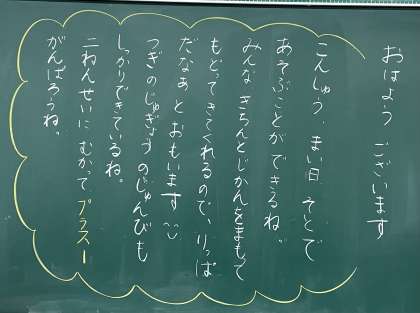 おはよう ございます
こんしゅう、まい日 そとで
あそぶことが できるね。
みんな きちんとじかんをまもって
もどってきてくれるので、りっぱ
だなぁと おもいます
つぎの じゅぎょうの じゅんびも
しっかりできているね。
二ねんせいに むかって プラス1
がんばろうね。